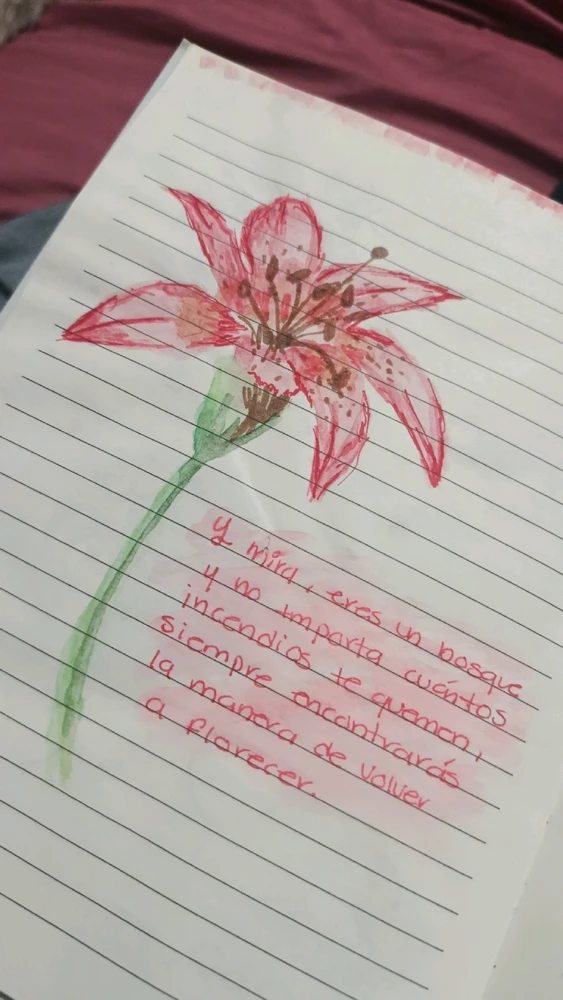 y mira, eres un bosque
y no importa cuántos
incendios te quemen,
siempre encontrarás
la manera de volver
a florecer.